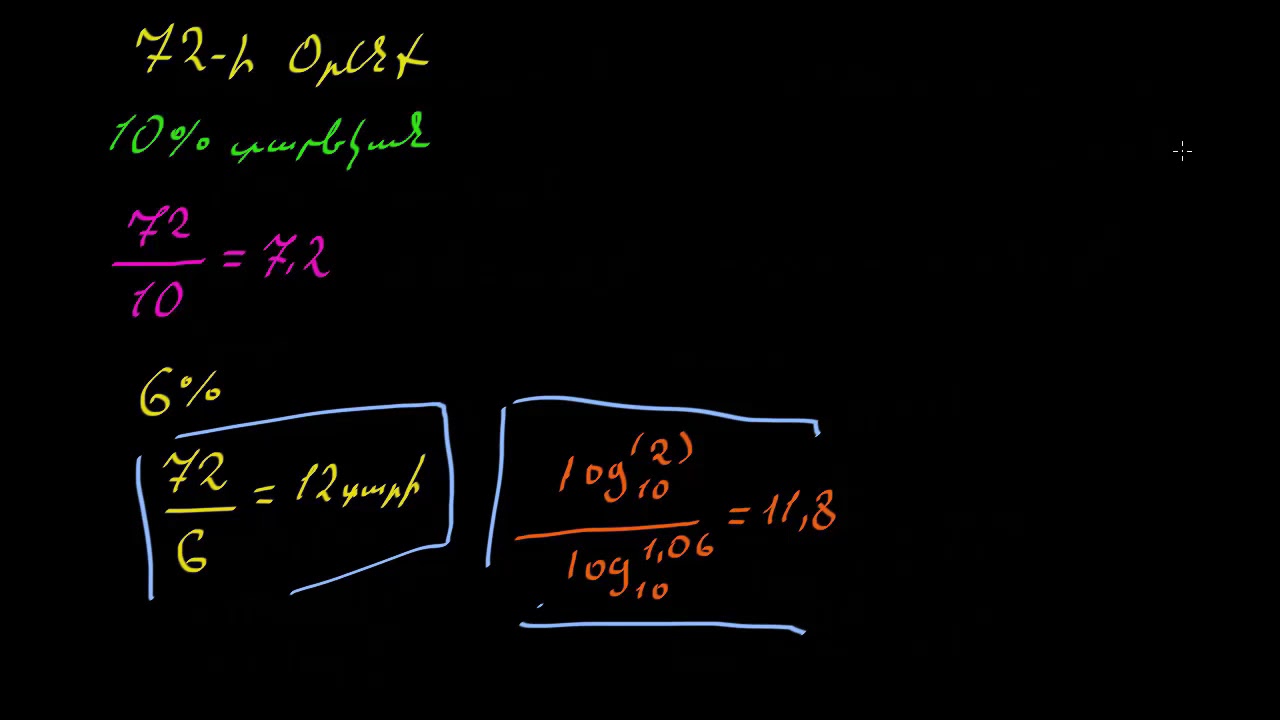 72-ի Օրենք
10% տարեկան
72/10 = 7,2
6%
72/6 = 12 տարի
log₁₀(2) / log₁₀1,06 = 11,8